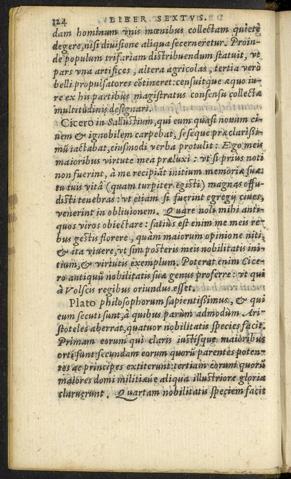 124 LIBER SEXTVS.
dam hominum vnis mœnibus collectam quietę
degere, nisi diuisione aliqua secerneretur. Proin-
de populum trifariam distribuendum statuit, vt
pars vna artifices, altera agricolas, tertia verò
belli propulsatores cõtineret: censuitque a quo iu-
re ex his partibus magistratus consensu collectæ
multitudinis designari.
Cicero in Sallustium, qui eum quasi nouum ci-
uem & ignobilem carpebat, se seque præclarissi-
mũ iactabat, eiusmodi verba protulit: Ego meis
maioribus virtute mea præluxi: vt si prius noti
non fuerint, à me recipiãt initium memoriæ suæ:
tu tuis vitâ (quam turpiter egisti) magnas offu-
disti tenebras: vt etiam si fuerint egregij ciues,
venerint in obliuionem. Quare noli mihi anti-
quos viros obiectare: satius est enim me meis re-
bus gestis florere, quàm maiorum opinione niti,
& ita viuere, vt sim posteris meis nobilitatis ini-
tium, & virtutis exemplum. Poterat enim Cice-
ro antiquũ nobilitatis suæ genus proferre: vt qui
à Volscis regibus oriundus esset.
Plato philosophorum sapientissimus, & qui
eum secuti sunt, à quibus parùm admodùm Ari-
stoteles aberrat, quatuor nobilitatis species facit.
Primam eorum qui claris iustisque maioribus
orti sunt: secundam eorum quorũ parentes poten-
tes ac principes extiterunt: tertiam eorum quorũ
maiores domi militiæue aliqua illustriore gloria
claruerunt. Quartam nobilitatis speciem facit